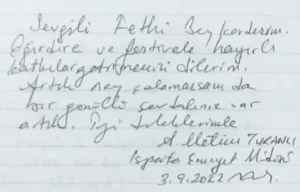 Sevgili Fethi Bey kardeşim.
Eğirdire ve festivale hayırlı
katkılar getirmenizi dilerim.
Artık ney çalamasam da
bir gönüllü sevdalınız var
artık. İyi dileklerimle
A. Metin TURANLI
Isparta Emniyet Müdürü
3.9.2022